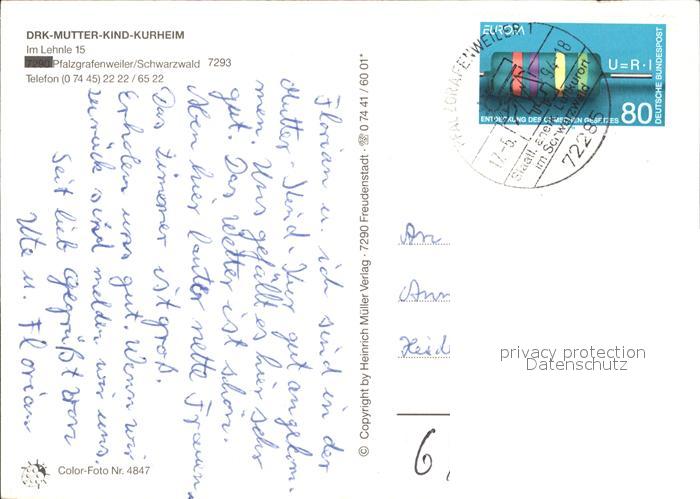 DRK-MUTTER-KIND-KURHEIM
Im Lehnle 15
7290 Pfalzgrafenweiler/Schwarzwald 7293
Telefon (0 74 45) 22 22 / 65 22
Florian u. ich sind in der
Mutter-Kind-Kur gut angekom-
men. Uns gefällt es hier sehr
gut. Das Wetter ist schön.
Aber hier lauter nette Frauen.
Das Zimmer ist groß.
Erholen uns gut. Wenn wir
zurück sind melden wir uns.
Seit lieb gegrüßt von
Ute u. Florian
Color-Foto Nr. 4847
© Copyright by Heinrich Müller Verlag - 7290 Freudenstadt - ☏ 0 74 41 / 60 01*
EUROPA
U=R·I
DEUTSCHE BUNDESPOST
ENTDECKUNG DES OHMSCHEN GESETZES 80
PFALZGRAFENWEILER 1
Staatl. anerk. Luftkurort
im Schwarzwald
72285
An
Ann
Heid
6
privacy protection
Datenschutz